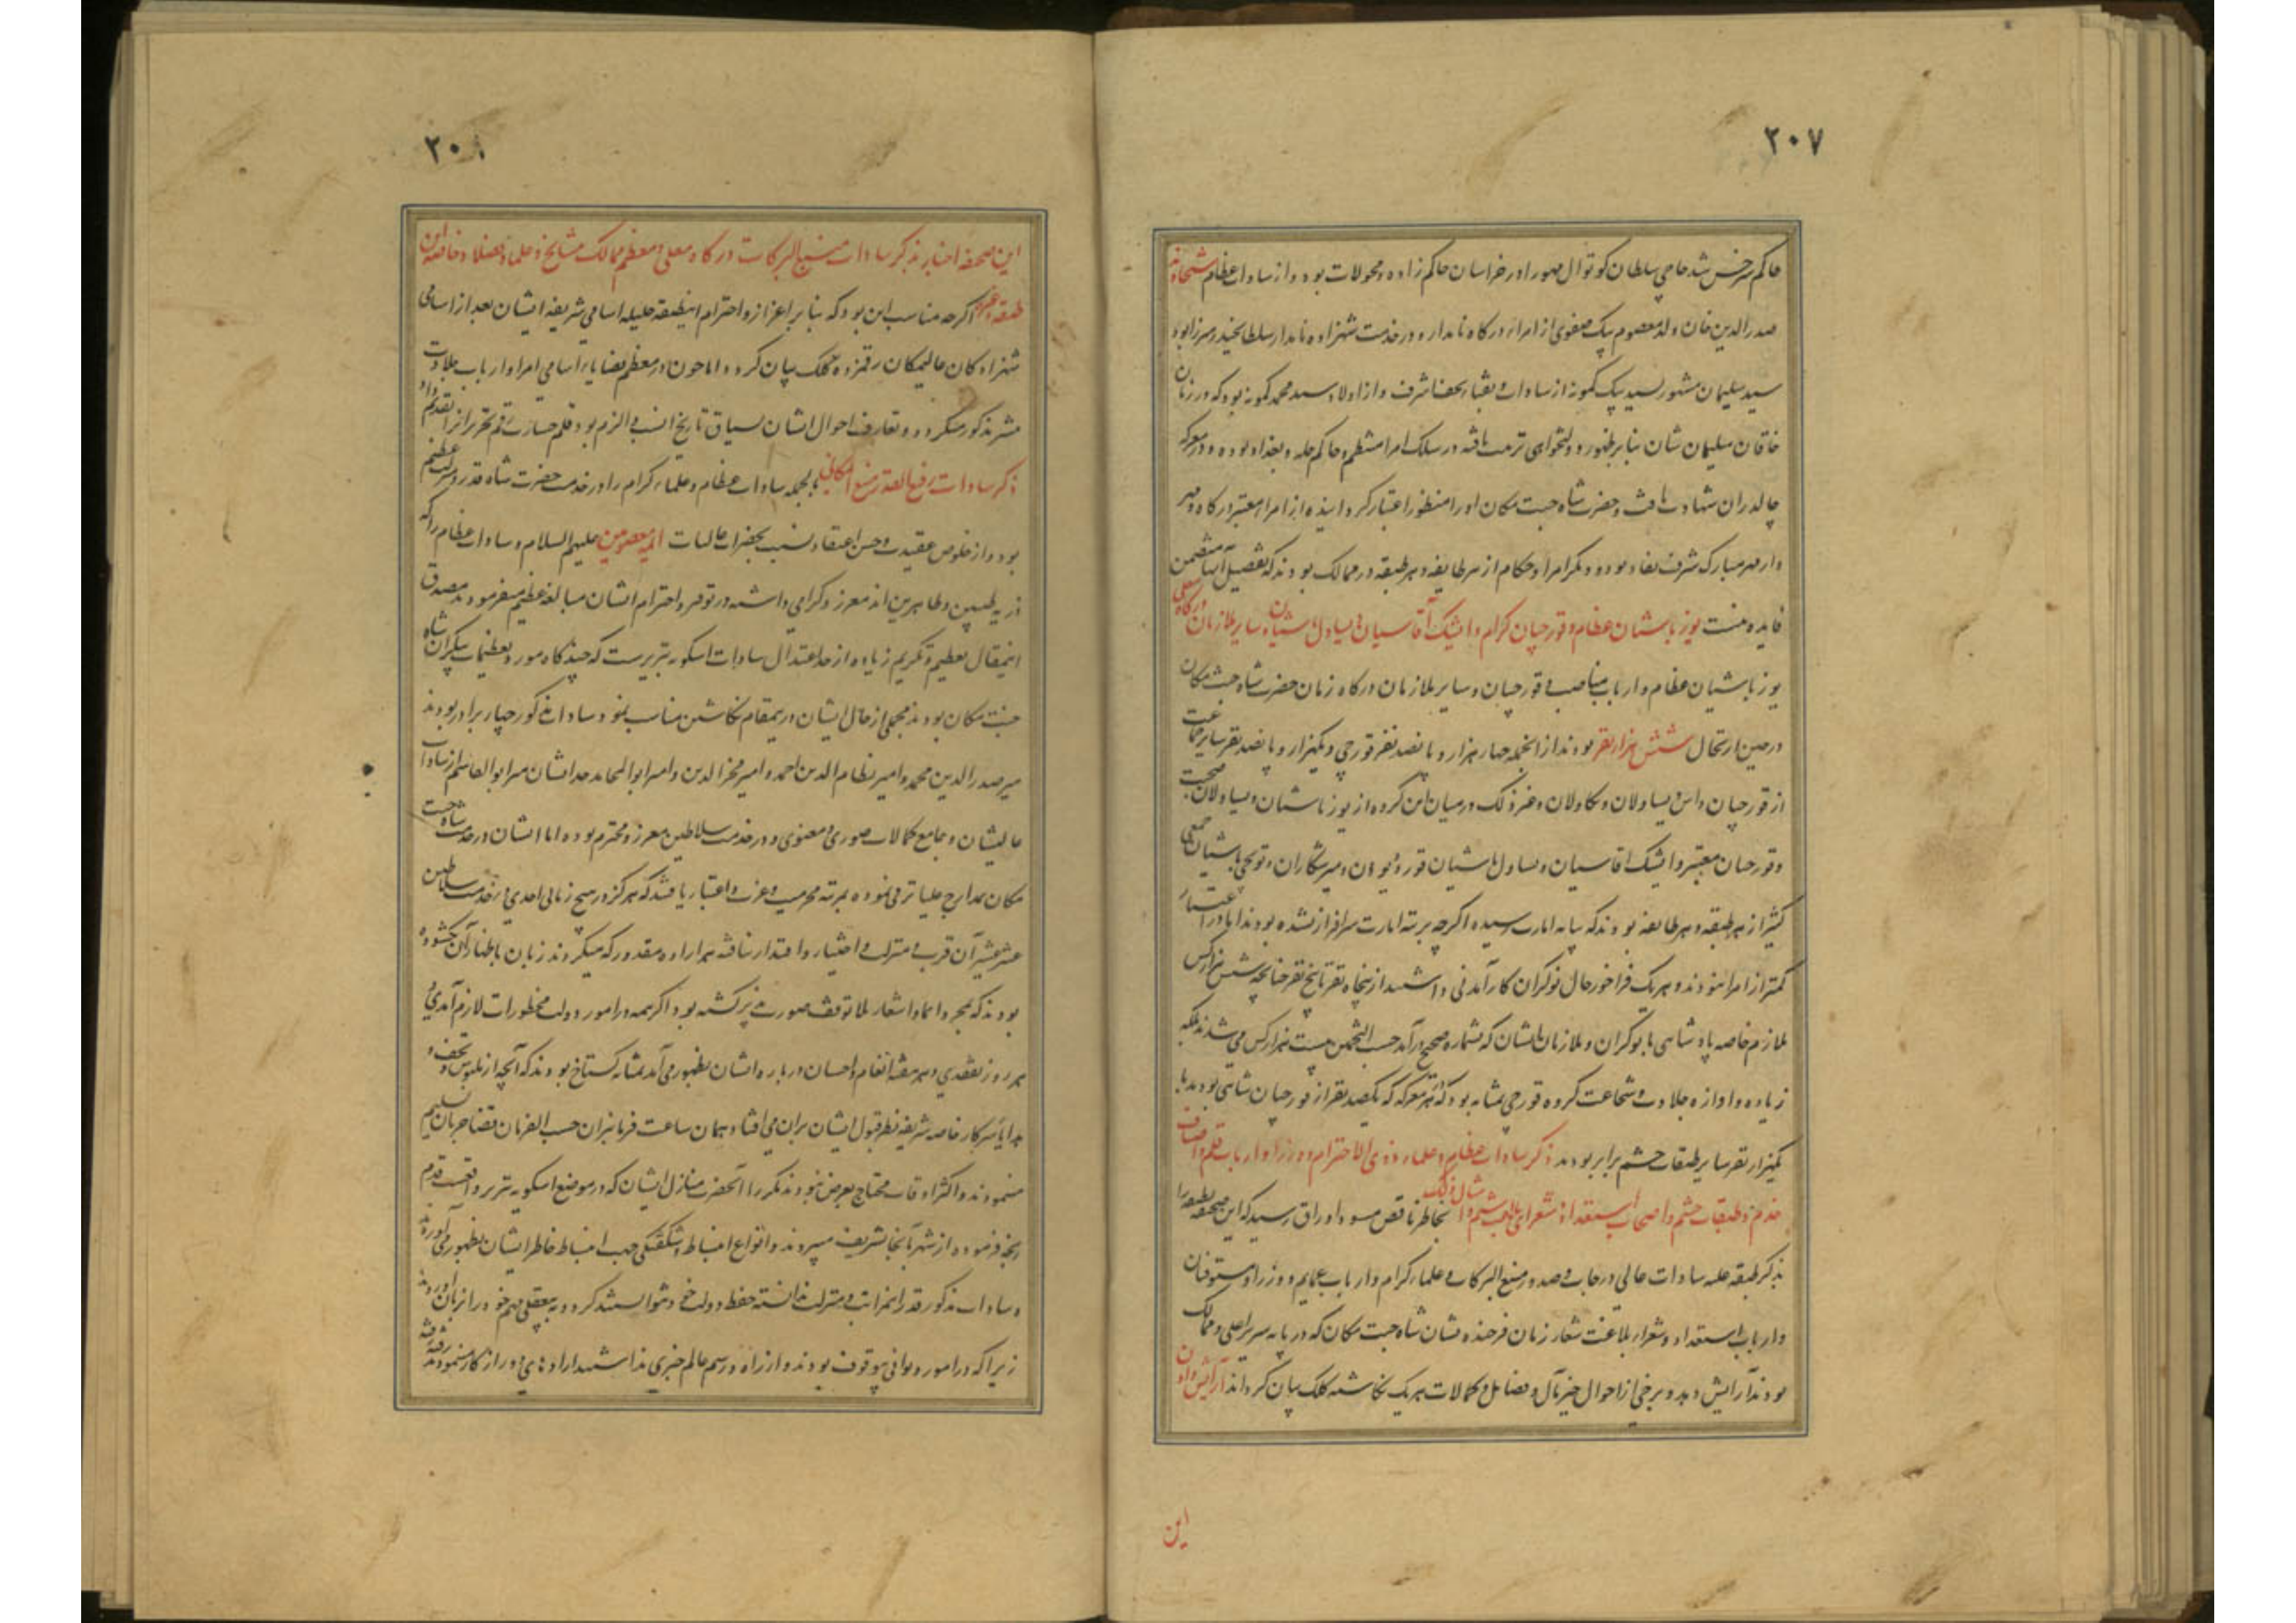 ۲۰۷
حاکم سرخس شد حاجی سلطان کوتوال مهور او در خراسان حاکم زاده و محولات بود و از سادات عظام شیخاوند
صدرالدین خان ولد معصوم بیک صفوی از امراء درگاه نامدار و در خدمت شهزاده نامدار سلطان حیدر میرزا بود
سید سلیمان مشهور بسید بیک کمونه از سادات و نقباء نجف اشرف و از اولاد سید محمد کمونه بود که در زمان
خاقان سلیمان شان بنابر ظهور دولتخواهی تربیت یافته در سلک امرا منتظم و حاکم حله و بغداد بوده و در معرکه
چالدران شهادت یافت و حضرت شاه جنت مکان او را منظور اعتبار گردانیده از امراء معتبر درگاه و مهر
دار مهر مبارک شرف نفاذ بود و دیگر امرا و حکام از هر طایفه و هر طبقه در ممالک بودند که تفصیل آنها متضمن
فایده نیست یوزباشیان عظام و قورچیان کرام و ایشیک آقاسیان و یساول باشیان و سایر ملازمان درگاه معلی
یوزباشیان عظام و ارباب مناصب و قورچیان و سایر ملازمان درگاه زمان حضرت شاه جنت مکان
در حین ارتحال شش هزار نفر بودند از آنجمله چهار هزار و پانصد نفر قورچی و یکهزار و پانصد نفر سایر جماعت
از قورچیان و یساولان و بکاولان و غیر ذلک در میان این گروه از یوزباشیان و یساولان صحبت
و قورچیان معتبر و ایشیک آقاسیان و یساول باشیان قور و بیوتان و میرشکاران و توپچی باشیان جمعی
کثیر از هر طبقه و هر طایفه بودند که بپایه امارت رسیده اگرچه برتبه امارت سرافراز نشده بودند اما در اعتبار
کمتر از امرا نبودند و هر یک فراخور حال نوکران کارآمدنی داشتند از پنجاه نفر تا پنج نفر چنانچه شش هزار کس
ملازم خاصه پادشاهی با نوکران و ملازمان ایشان که بشماره صحیح درآمد حسب التخمین بیست هزار کس می شدند بلکه
زیاده و آوازه جلادت و شجاعت گروه قورچی بمثابه بود که در هر معرکه که یکصد نفر از قورچیان شاهی بودند با
یکهزار نفر سایر طبقات حشم برابر بودند ذکر سادات عظام و علماء ذوی الاحترام و وزرا و ارباب قلم و اصناف
خدم و طبقات حشم و اصحاب استعداد و شعرای بلاغت شیم و امثال ذلک بخاطر ناقص مسود اوراق رسید که این صحیفه را
بذکر طبقه علیه سادات عالی درجات و صدور منبع البرکات و علماء کرام و ارباب عمایم و وزرا و مستوفیان
و ارباب استعداد و شعراء بلاغت شعار زمان فرخنده نشان شاه جنت مکان که در پایه سریر اعلی و ممالک
بودند آرایش دهد و برخی از احوال خیر مآل و فضایل و کمالات هر یک نگاشته کلک بیان گرداند آرایش دادن
این
۲۰۸
این صحیفه اخبار بذکر سادات منبع البرکات درگاه معلی و معظم ممالک مشایخ و علماء و فضلاء و خاتمه این
طبقه اگرچه مناسب این بود که بنابر اعزاز و احترام اینطبقه جلیله اسامی شریفه ایشان بعد از اسامی
شهزادگان عالیمکان رقمزده کلک بیان گردد اما چون در معظم قضایا اسامی امرا و ارباب جلادت
بیشتر مذکور میگردد و تعارف احوال ایشان بسیاق تاریخ انسب و الزم بود قلم جسارت رقم تحریر آنرا تقدیم داد
ذکر سادات رفیع القدر منیع المکانی بالجمله سادات عظام و علماء کرام را در خدمت حضرت شاه قدر و منزلت عظیم
بود و از خلوص عقیدت و حسن اعتقاد نسبت بحضرات عالیات ائمه معصومین علیهم السلام و سادات عظام را که
ذریه طیبین و طاهرین اند معزز و گرامی داشته در توقیر و احترام ایشان مبالغه عظیم میفرمودند مصدق
اینمقال تعظیم و تکریم زیاده از حد اعتدال سادات اسکویه تبریزست که چند گاه مورد تعظیمات بیکران شاه
جنت مکان بودند مجملی از حال ایشان درینمقام نگاشتن مناسب نمود سادات مذکور چهار برادر بودند
میر صدرالدین محمد و امیر نظام الدین احمد و امیر فخرالدین و امیر ابوالمحامد جد ایشان میر ابوالقاسم از سادات
عالیشان و جامع کمالات صوری و معنوی و در خدمت سلاطین معزز و محترم بوده اما ایشان در خدمت شاه جنت
مکان بمدارج علیا ترقی نموده بمرتبه محرمیت و عزت و اعتبار یافتند که هرگز در هیچ زمانی احدی در خدمت سلاطین
عشر عشیر آن قرب و منزلت و اختیار و اقتدار نیافته هر اراده مقدور که میکردند زبان باظهار آن نگشوده
بودند که بمجرد ایما و اشعار بلا توقف صورت پذیر گشته بود اگر همه در امور دولت محظورات لازم آمدی و
هر روز تفقدی و هر هفته انعام و احسان درباره ایشان بظهور می آمد بمثابه گستاخ بودند که آنچه از ملبوس و تحف و
هدایا سرکار خاصه شریفه نظر قبول ایشان بران می افتاد همان ساعت فرمانبران حسب الفرمان قضا جریان تسلیم
مینمودند و اکثر اوقات محتاج بعرض نبودند مکررا آنحضرت منازل ایشان که در موضع اسکویه تبریز واقعست قدم
رنجه فرموده از شهر بآنجا تشریف میبردند و انواع انبساط و شگفتگی جهت انبساط خاطر ایشان بظهور می آوردند
و سادات مذکور قدر آنمراتب و منزلت ندانسته حفظ دولت خود نتوانستند کرد و به بیعقلی مهم خود را بزیان آوردند
زیرا که در امور دیوانی بیوقوف بودند و از راه و رسم عالم خبری نداشتند اراده های دور از کار مینمودند رفته رفته